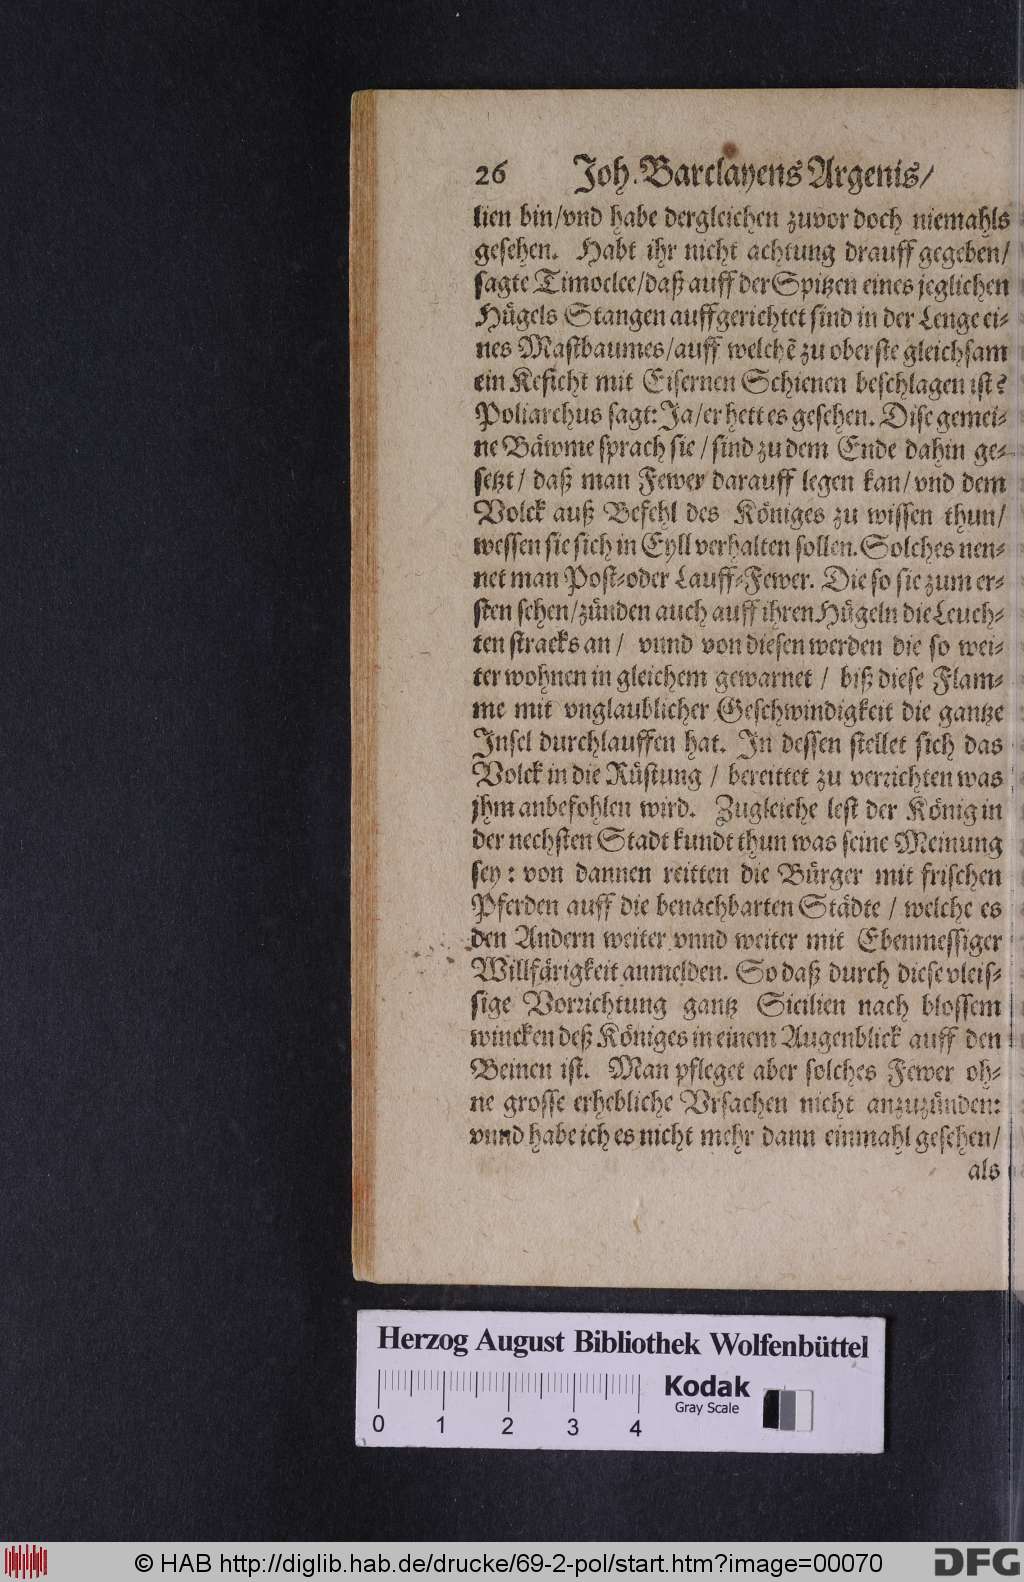 26 Joh. Barclayens Argenis/
lien bin/vnd habe dergleichen zuvor doch niemahls
gesehen. Habt ihr nicht achtung drauff gegeben/
sagte Timoclee/daß auff der Spitzen eines jeglichen
Hügels Stangen auffgerichtet sind in der Lenge ei-
nes Mastbaumes/auff welchẽ zu oberste gleichsam
ein Keficht mit Eisernen Schienen beschlagen ist?
Poliarchus sagt: Ja/er hett es gesehen. Dise gemei-
ne Bäwme sprach sie / sind zu dem Ende dahin ge-
setzt / daß man Fewer darauff legen kan/ vnd dem
Volck auß Befehl des Königes zu wissen thun/
wessen sie sich in Eyll verhalten sollen. Solches nen-
net man Post-oder Lauff-Fewer. Die so sie zum er-
sten sehen/zünden auch auff ihren Hügeln die Leuch-
ten stracks an / vnnd von diesen werden die so wei-
ter wohnen in gleichem gewarnet / biß diese Flam-
me mit vnglaublicher Geschwindigkeit die gantze
Insel durchlauffen hat. In dessen stellet sich das
Volck in die Rüstung / bereittet zu verrichten was
jhm anbefohlen wird. Zugleiche lest der König in
der nechsten Stadt kundt thun was seine Meinung
sey: von dannen reitten die Bürger mit frischen
Pferden auff die benachbarten Städte / welche es
den Andern weiter vnnd weiter mit Ebenmessiger
Willfärigkeit anmelden. So daß durch diese vleis-
sige Vorrichtung gantz Sicilien nach blossem
wincken deß Königes in einem Augenblick auff den
Beinen ist. Man pfleget aber solches Fewer oh-
ne grosse erhebliche Vrsachen nicht anzuzünden:
vnnd habe ich es nicht mehr dann einmahl gesehen/
als
Herzog August Bibliothek Wolfenbüttel
Kodak
Gray Scale
0 1 2 3 4
© HAB http://diglib.hab.de/drucke/69-2-pol/start.htm?image=00070
DFG